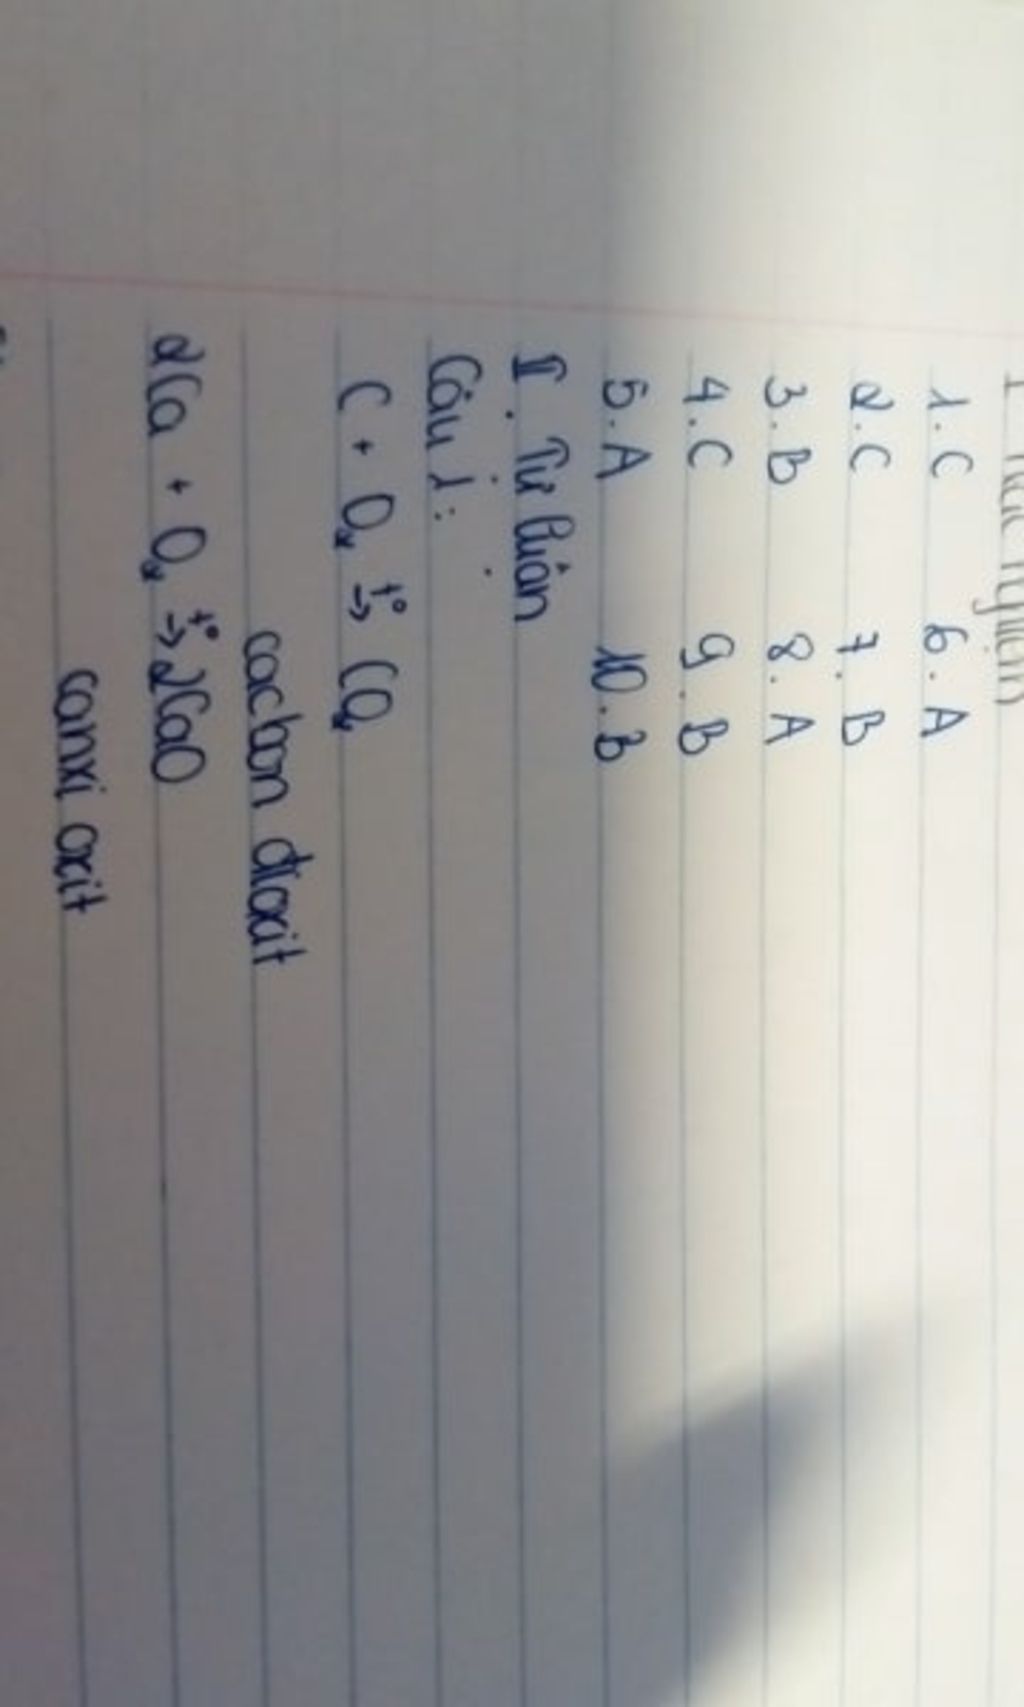 I. Trắc nghiệm
1.C 6.A
2.C 7.B
3.B 8.A
4.C 9.B
5.A 10.B
II. Tự luận
Câu 1:
C + O₂ t°→ CO₂
cacbon đioxit
2Ca + O₂ t°→ 2CaO
canxi oxit